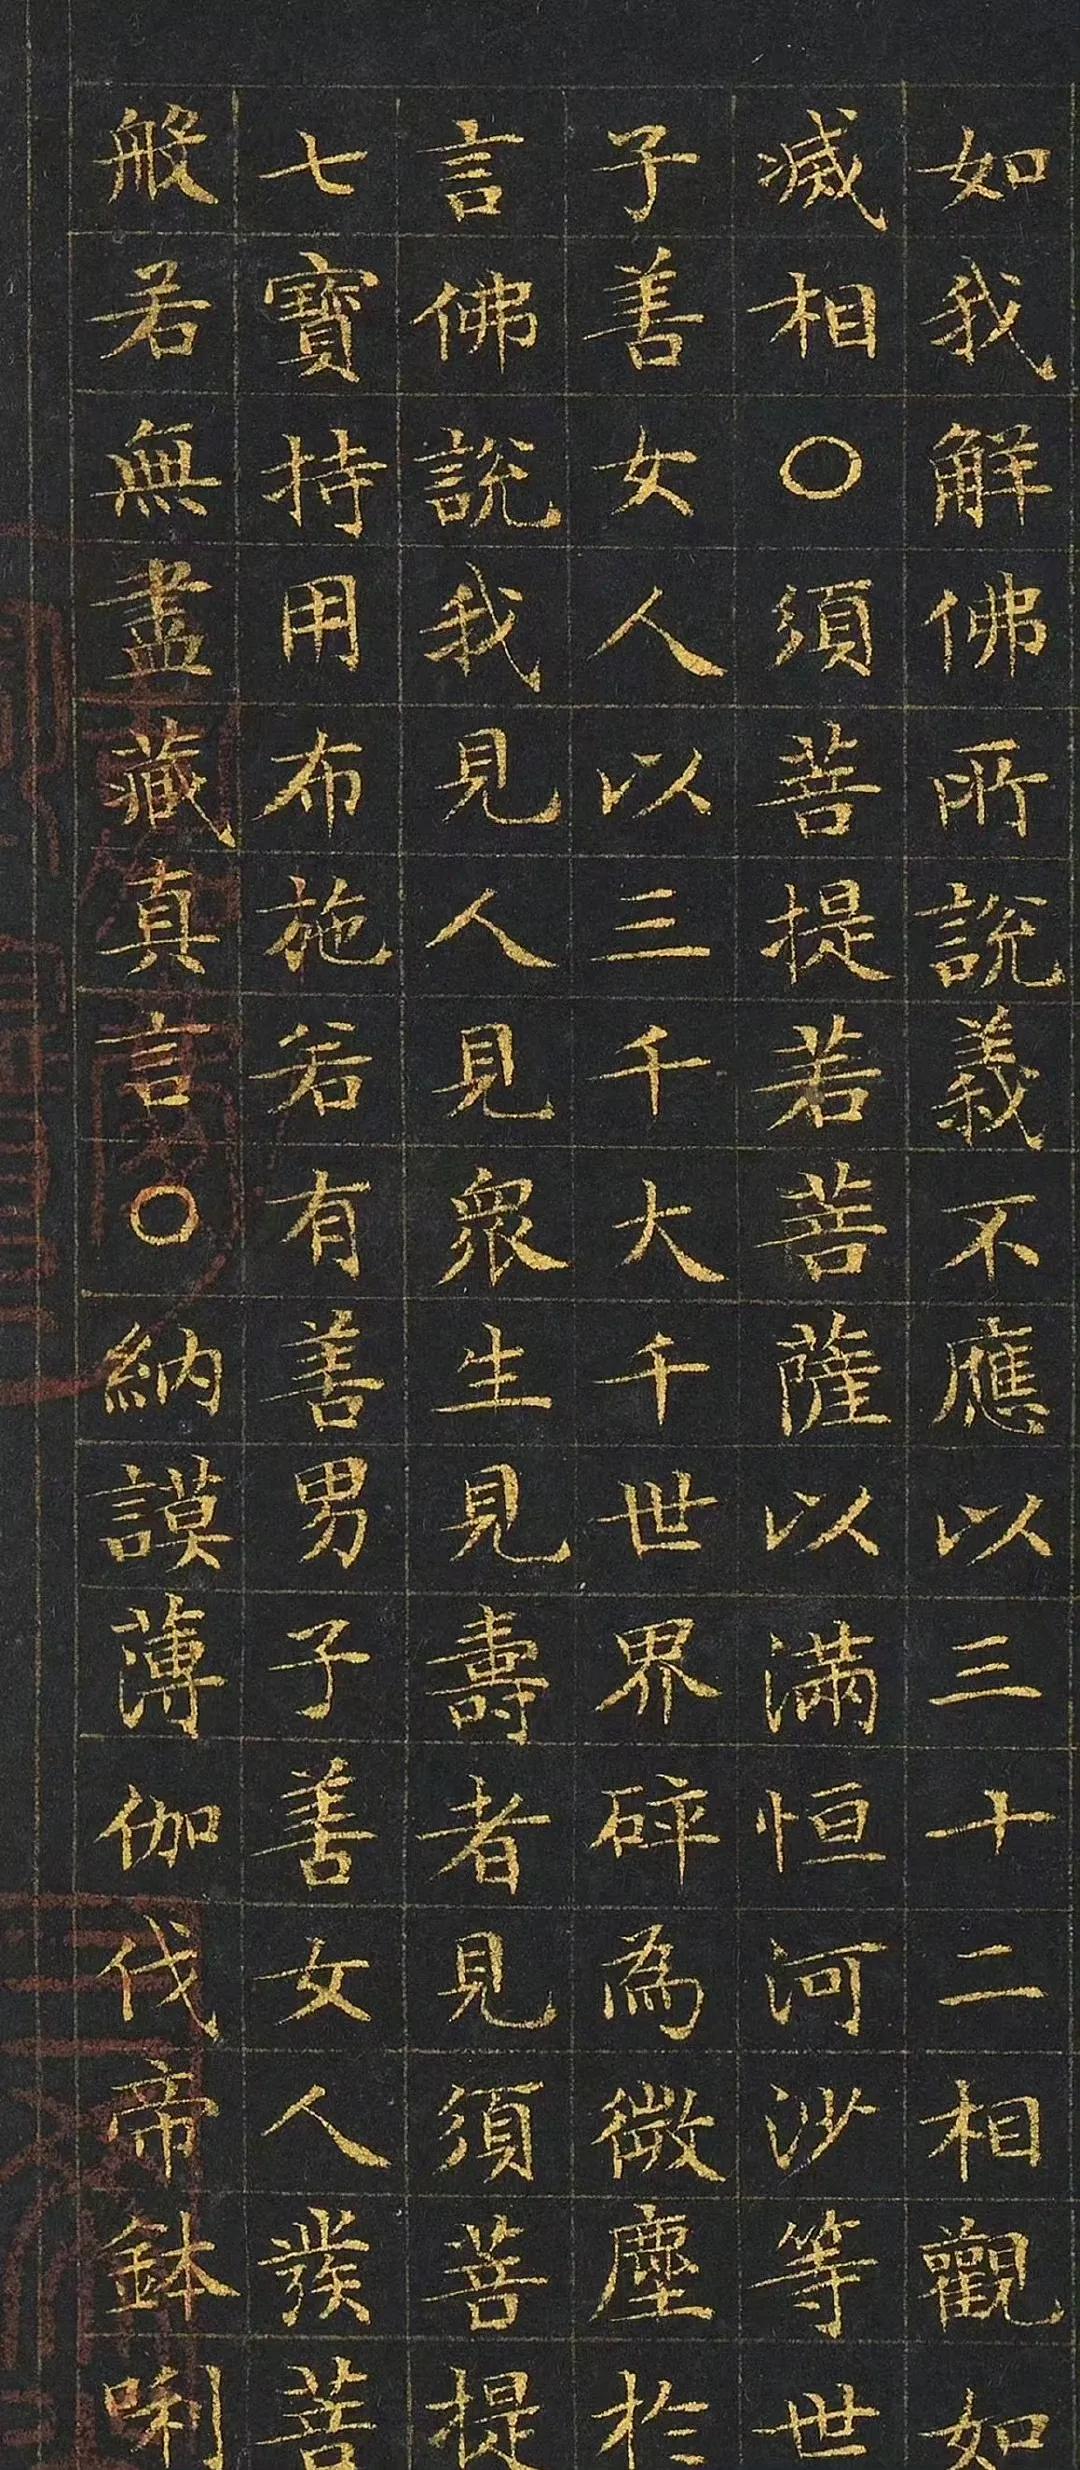 如我解佛所說義不應以三十二相觀如
滅相〇須菩提若菩薩以滿恒河沙等世
子善女人以三千大千世界碎為微塵於
言佛說我見人見眾生見壽者見須菩提
七寶持用布施若有善男子善女人發菩
般若無盡藏真言〇納謨薄伽伐帝鉢唎